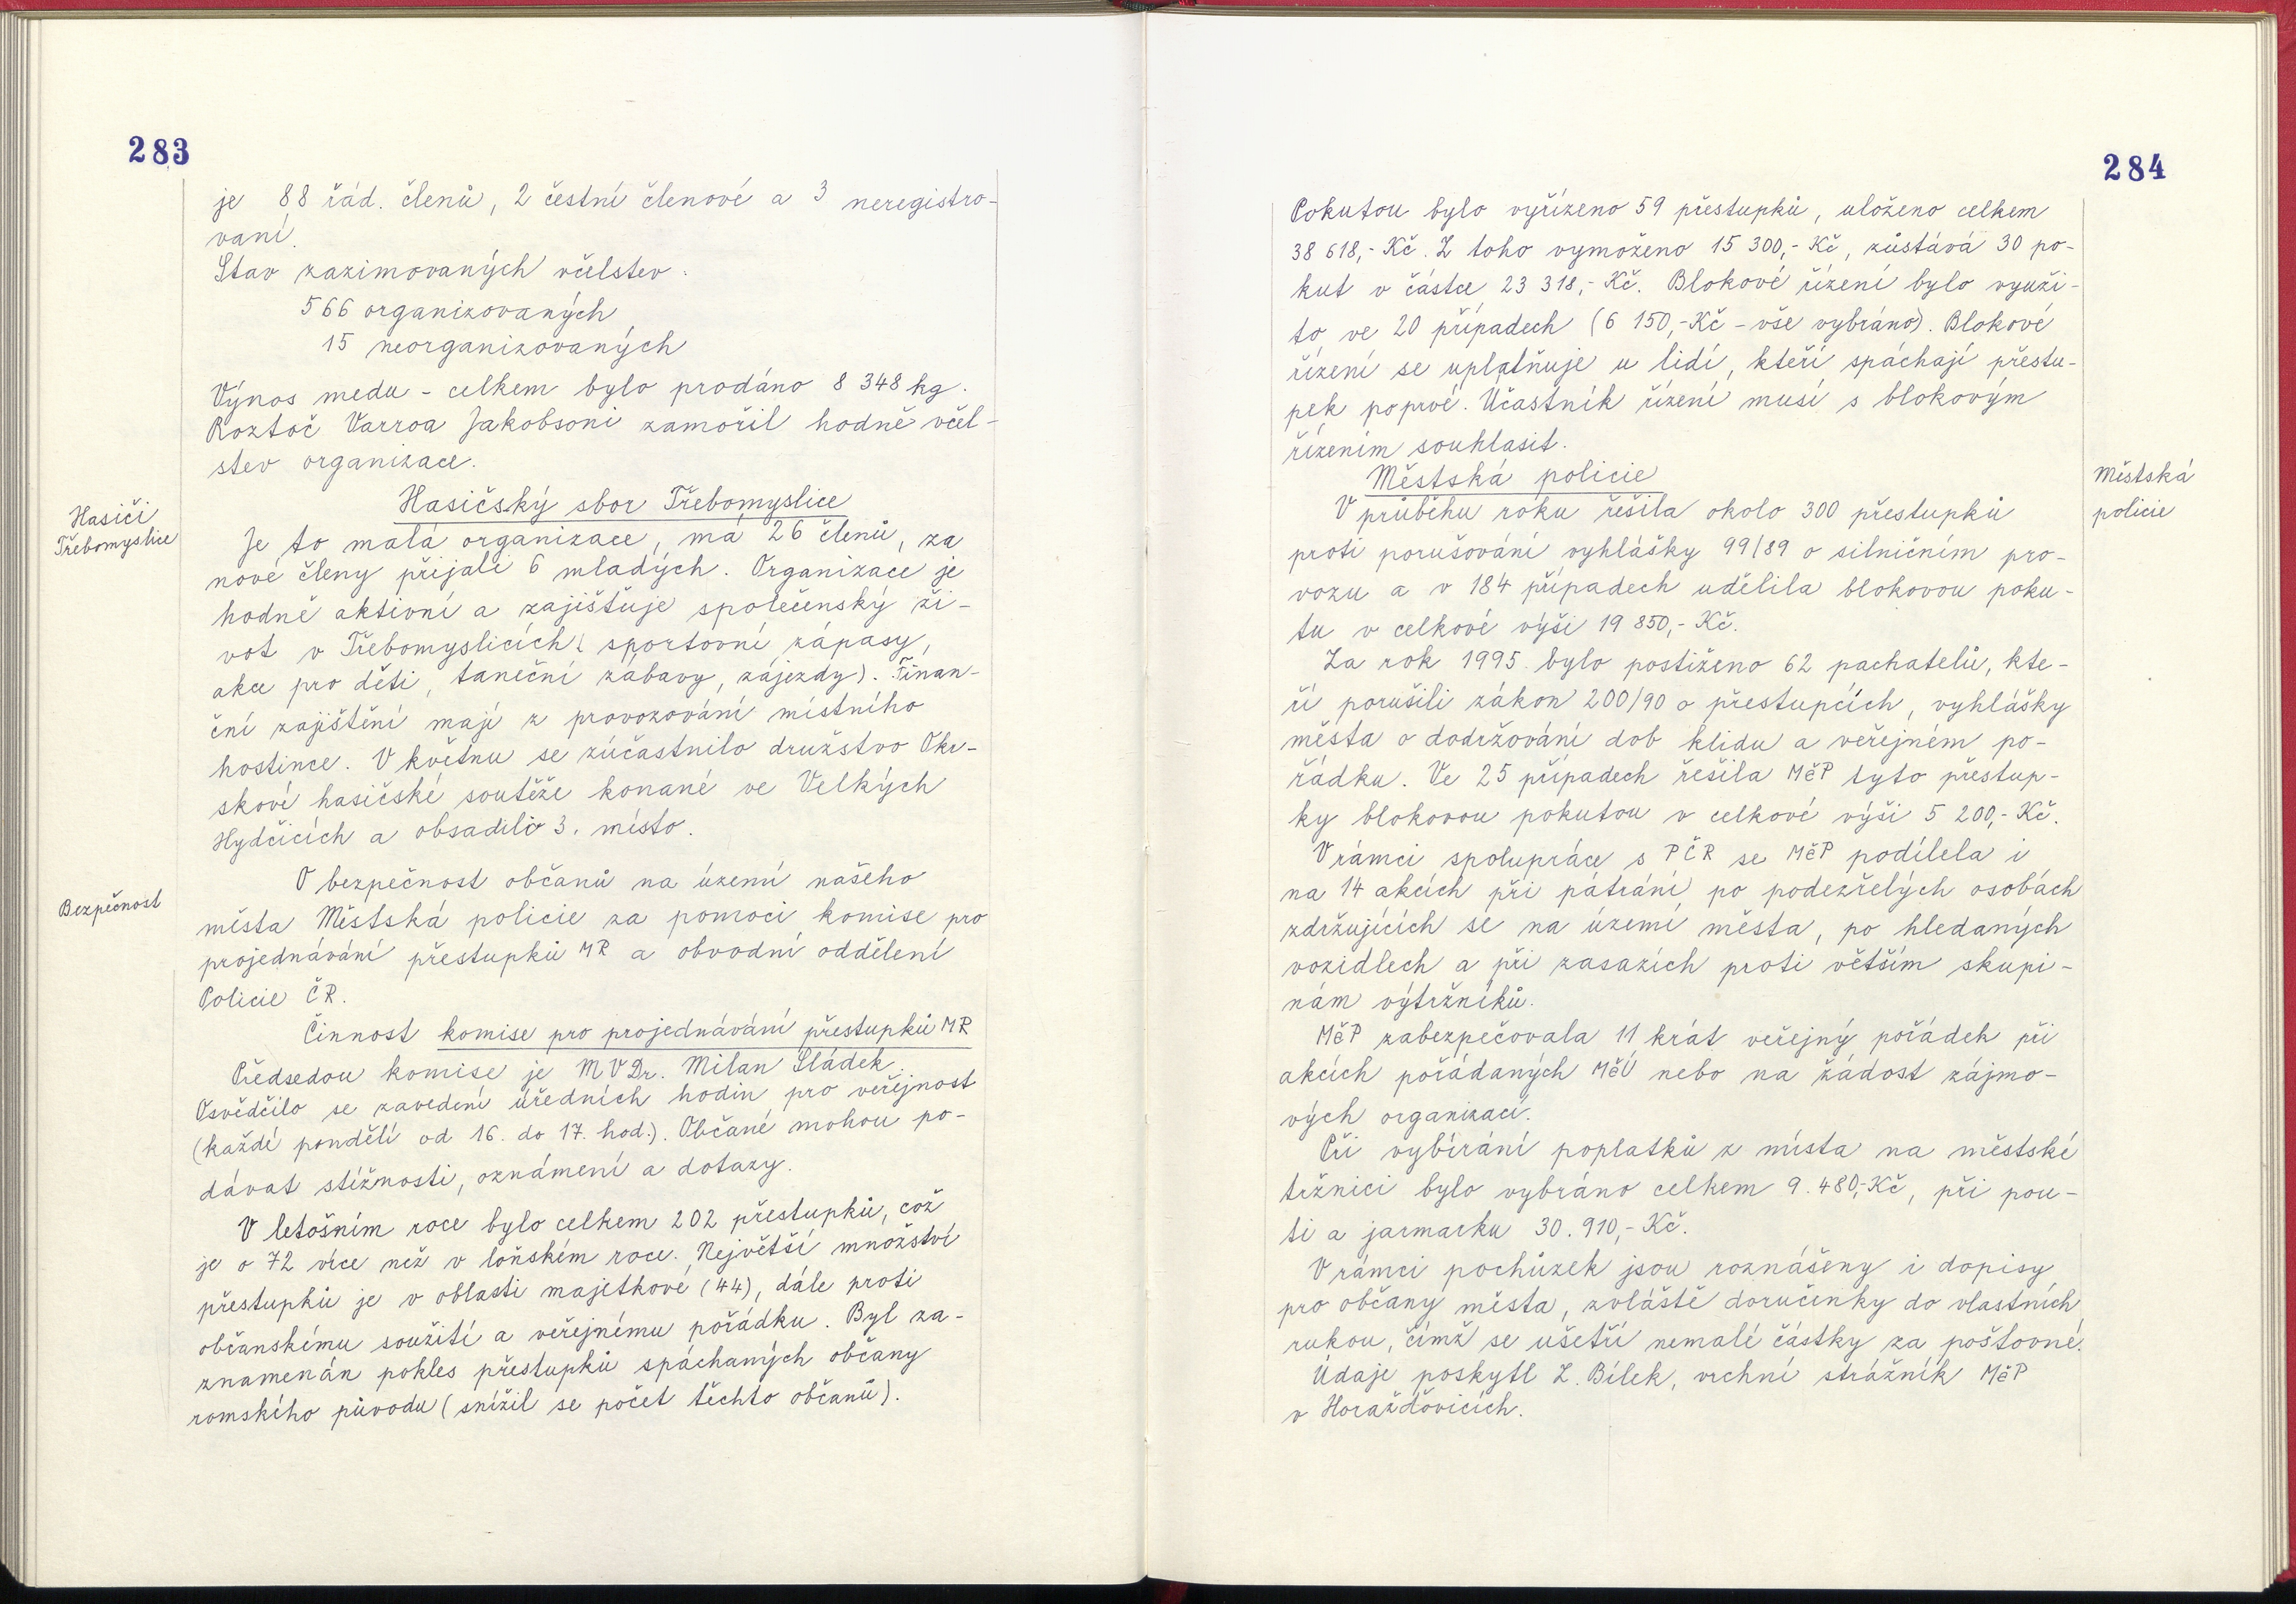 283
je 88 řád. členů, 2 čestní členové a 3 neregistro-
vaní.
Stav zazimovaných včelstev:
566 organizovaných
15 neorganizovaných
Výnos medu - celkem bylo prodáno 8 348 kg.
Roztoč Varroa Jakobsoni zamořil hodně včel-
stev organizace.
Hasiči
Třebomyslice
Hasičský sbor Třebomyslice
Je to malá organizace, má 26 členů, za
nové členy přijali 6 mladých. Organizace je
hodně aktivní a zajišťuje společenský ži-
vot v Třebomyslicích ( sportovní zápasy,
akce pro děti, taneční zábavy, zájezdy). Finan-
ční zajištění mají z provozování místního
hostince. V květnu se zúčastnilo družstvo Okr-
skové hasičské soutěže konané ve Velkých
Hydčicích a obsadilo 3. místo.
Bezpečnost
O bezpečnost občanů na území našeho
města Městská policie za pomoci komise pro
projednávání přestupků MR a obvodní oddělení
Policie ČR.
Činnost komise pro projednávání přestupků MR
Předsedou komise je MVDr. Milan Sládek.
Osvědčilo se zavedení úředních hodin pro veřejnost
(každé pondělí od 16. do 17. hod.). Občané mohou po-
dávat stížnosti, oznámení a dotazy.
V letošním roce bylo celkem 202 přestupků, což
je o 72 více než v loňském roce. Největší množství
přestupků je v oblasti majetkové (44), dále proti
občanskému soužití a veřejnému pořádku. Byl za-
znamenán pokles přestupků spáchaných občany
romského původu (snížil se počet těchto občanů).
284
Pokutou bylo vyřízeno 59 přestupků, uloženo celkem
38 618,- Kč. Z toho vymoženo 15 300,- Kč, zůstává 30 po-
kut v částce 23 318,- Kč. Blokové řízení bylo využi-
to ve 20 případech (6 150,-Kč - vše vybráno). Blokové
řízení se uplatňuje u lidí, kteří spáchají přestu-
pek poprvé. Účastník řízení musí s blokovým
řízením souhlasit.
Městská policie
Městská
policie
V průběhu roku řešila okolo 300 přestupků
proti porušování vyhlášky 99/89 o silničním pro-
vozu a v 184 případech udělila blokovou poku-
tu v celkové výši 19 850,- Kč.
Za rok 1995 bylo postiženo 62 pachatelů, kte-
ří porušili zákon 200/90 o přestupcích, vyhlášky
města o dodržování dob klidu a veřejném po-
řádku. Ve 25 případech řešila MěP tyto přestup-
ky blokovou pokutou v celkové výši 5 200,- Kč.
V rámci spolupráce s PČR se MěP podílela i
na 14 akcích při pátrání po podezřelých osobách
zdržujících se na území města, po hledaných
vozidlech a při zasazích proti větším skupi-
nám výtržníků.
MěP zabezpečovala 11 krát veřejný pořádek při
akcích pořádaných MěÚ nebo na žádost zájmo-
vých organizací.
Při vybírání poplatků z místa na městské
tržnici bylo vybráno celkem 9.480,-Kč, při pou-
ti a jarmarku 30.910,- Kč.
V rámci pochůzek jsou roznášeny i dopisy
pro občany města, zvláště doručenky do vlastních
rukou, čímž se ušetří nemalé částky za poštovné.
Údaje poskytl Z. Bílek, vrchní strážník MěP
v Horažďovicích.